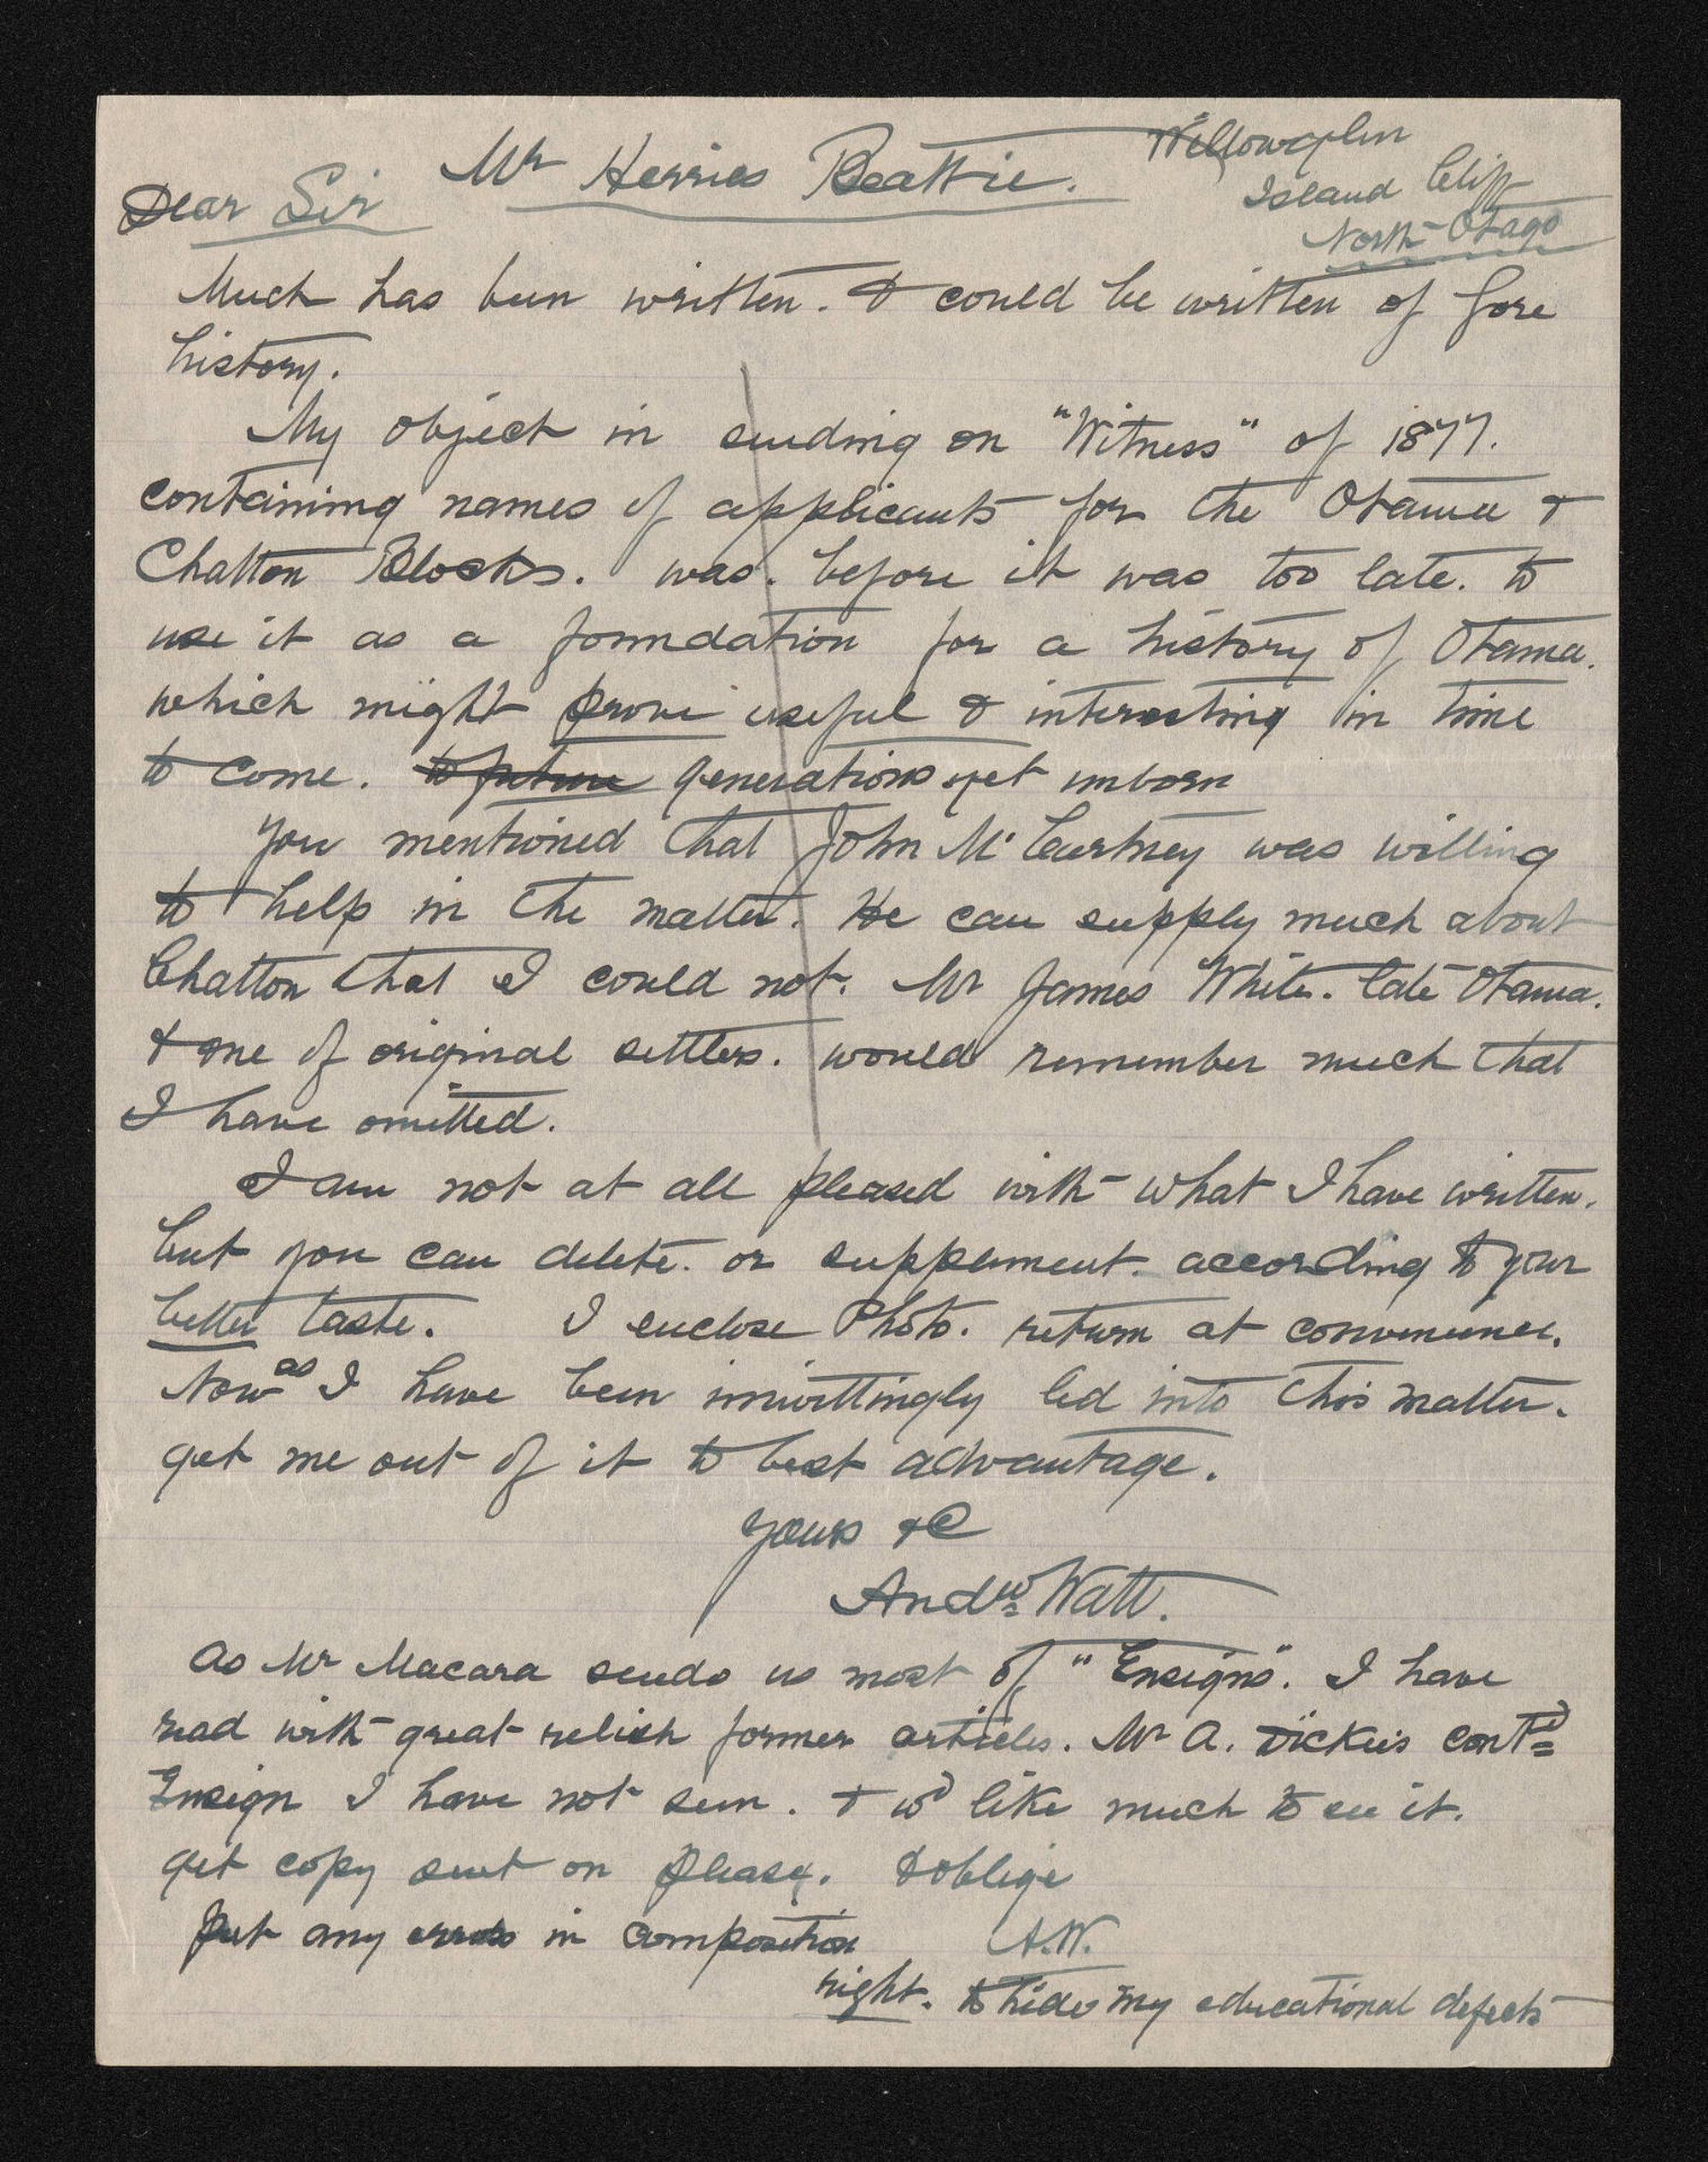 Willowglen
Island Cliff
North Otago
Mr Herries Beattie.
Dear Sir
Much has been written. & could be written of Gore
history.
My object in sending on "Witness" of 1877.
containing names of applicants for the Otama &
Chatton Blocks. was. before it was too late. to
use it as a foundation for a history of Otama.
which might prove useful & interesting in time
to come. to future generations yet unborn
You mentioned that John McCartney was willing
to help in the matter. He can supply much about
Chatton that I could not. Mr James White. late Otama.
& one of original settlers. would remember much that
I have omitted.
I am not at all pleased with what I have written.
but you can delete. or supplement. according to your
better taste. I enclose Photo. return at convenience.
Now as I have been unwittingly led into this matter.
get me out of it to best advantage.
Yours &C
Andw Watt.
As Mr Macara sends us most of "Ensigns". I have
read with great relish former articles. Mr A. Dickie's contd
Ensign I have not seen. & wd like much to see it.
get copy sent on please. & oblige
A.W.
Put any errors in composition
right. to hide my educational defects